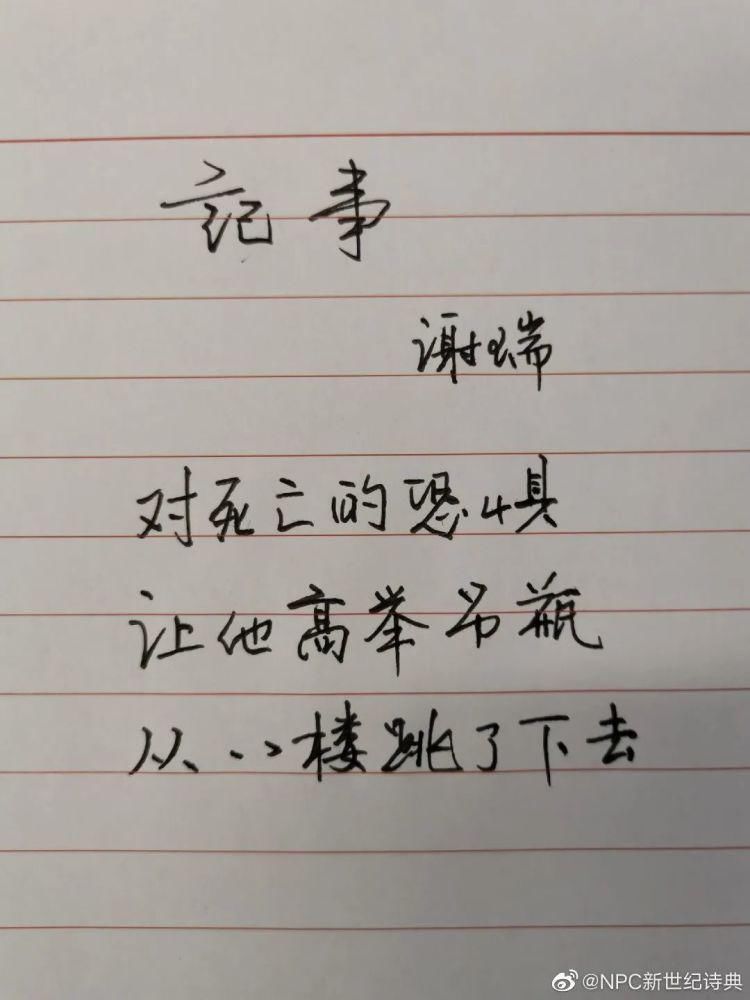 记事
谢瑞
对死亡的恐惧
让他高举吊瓶
从八楼跳了下去
@NPC新世纪诗典